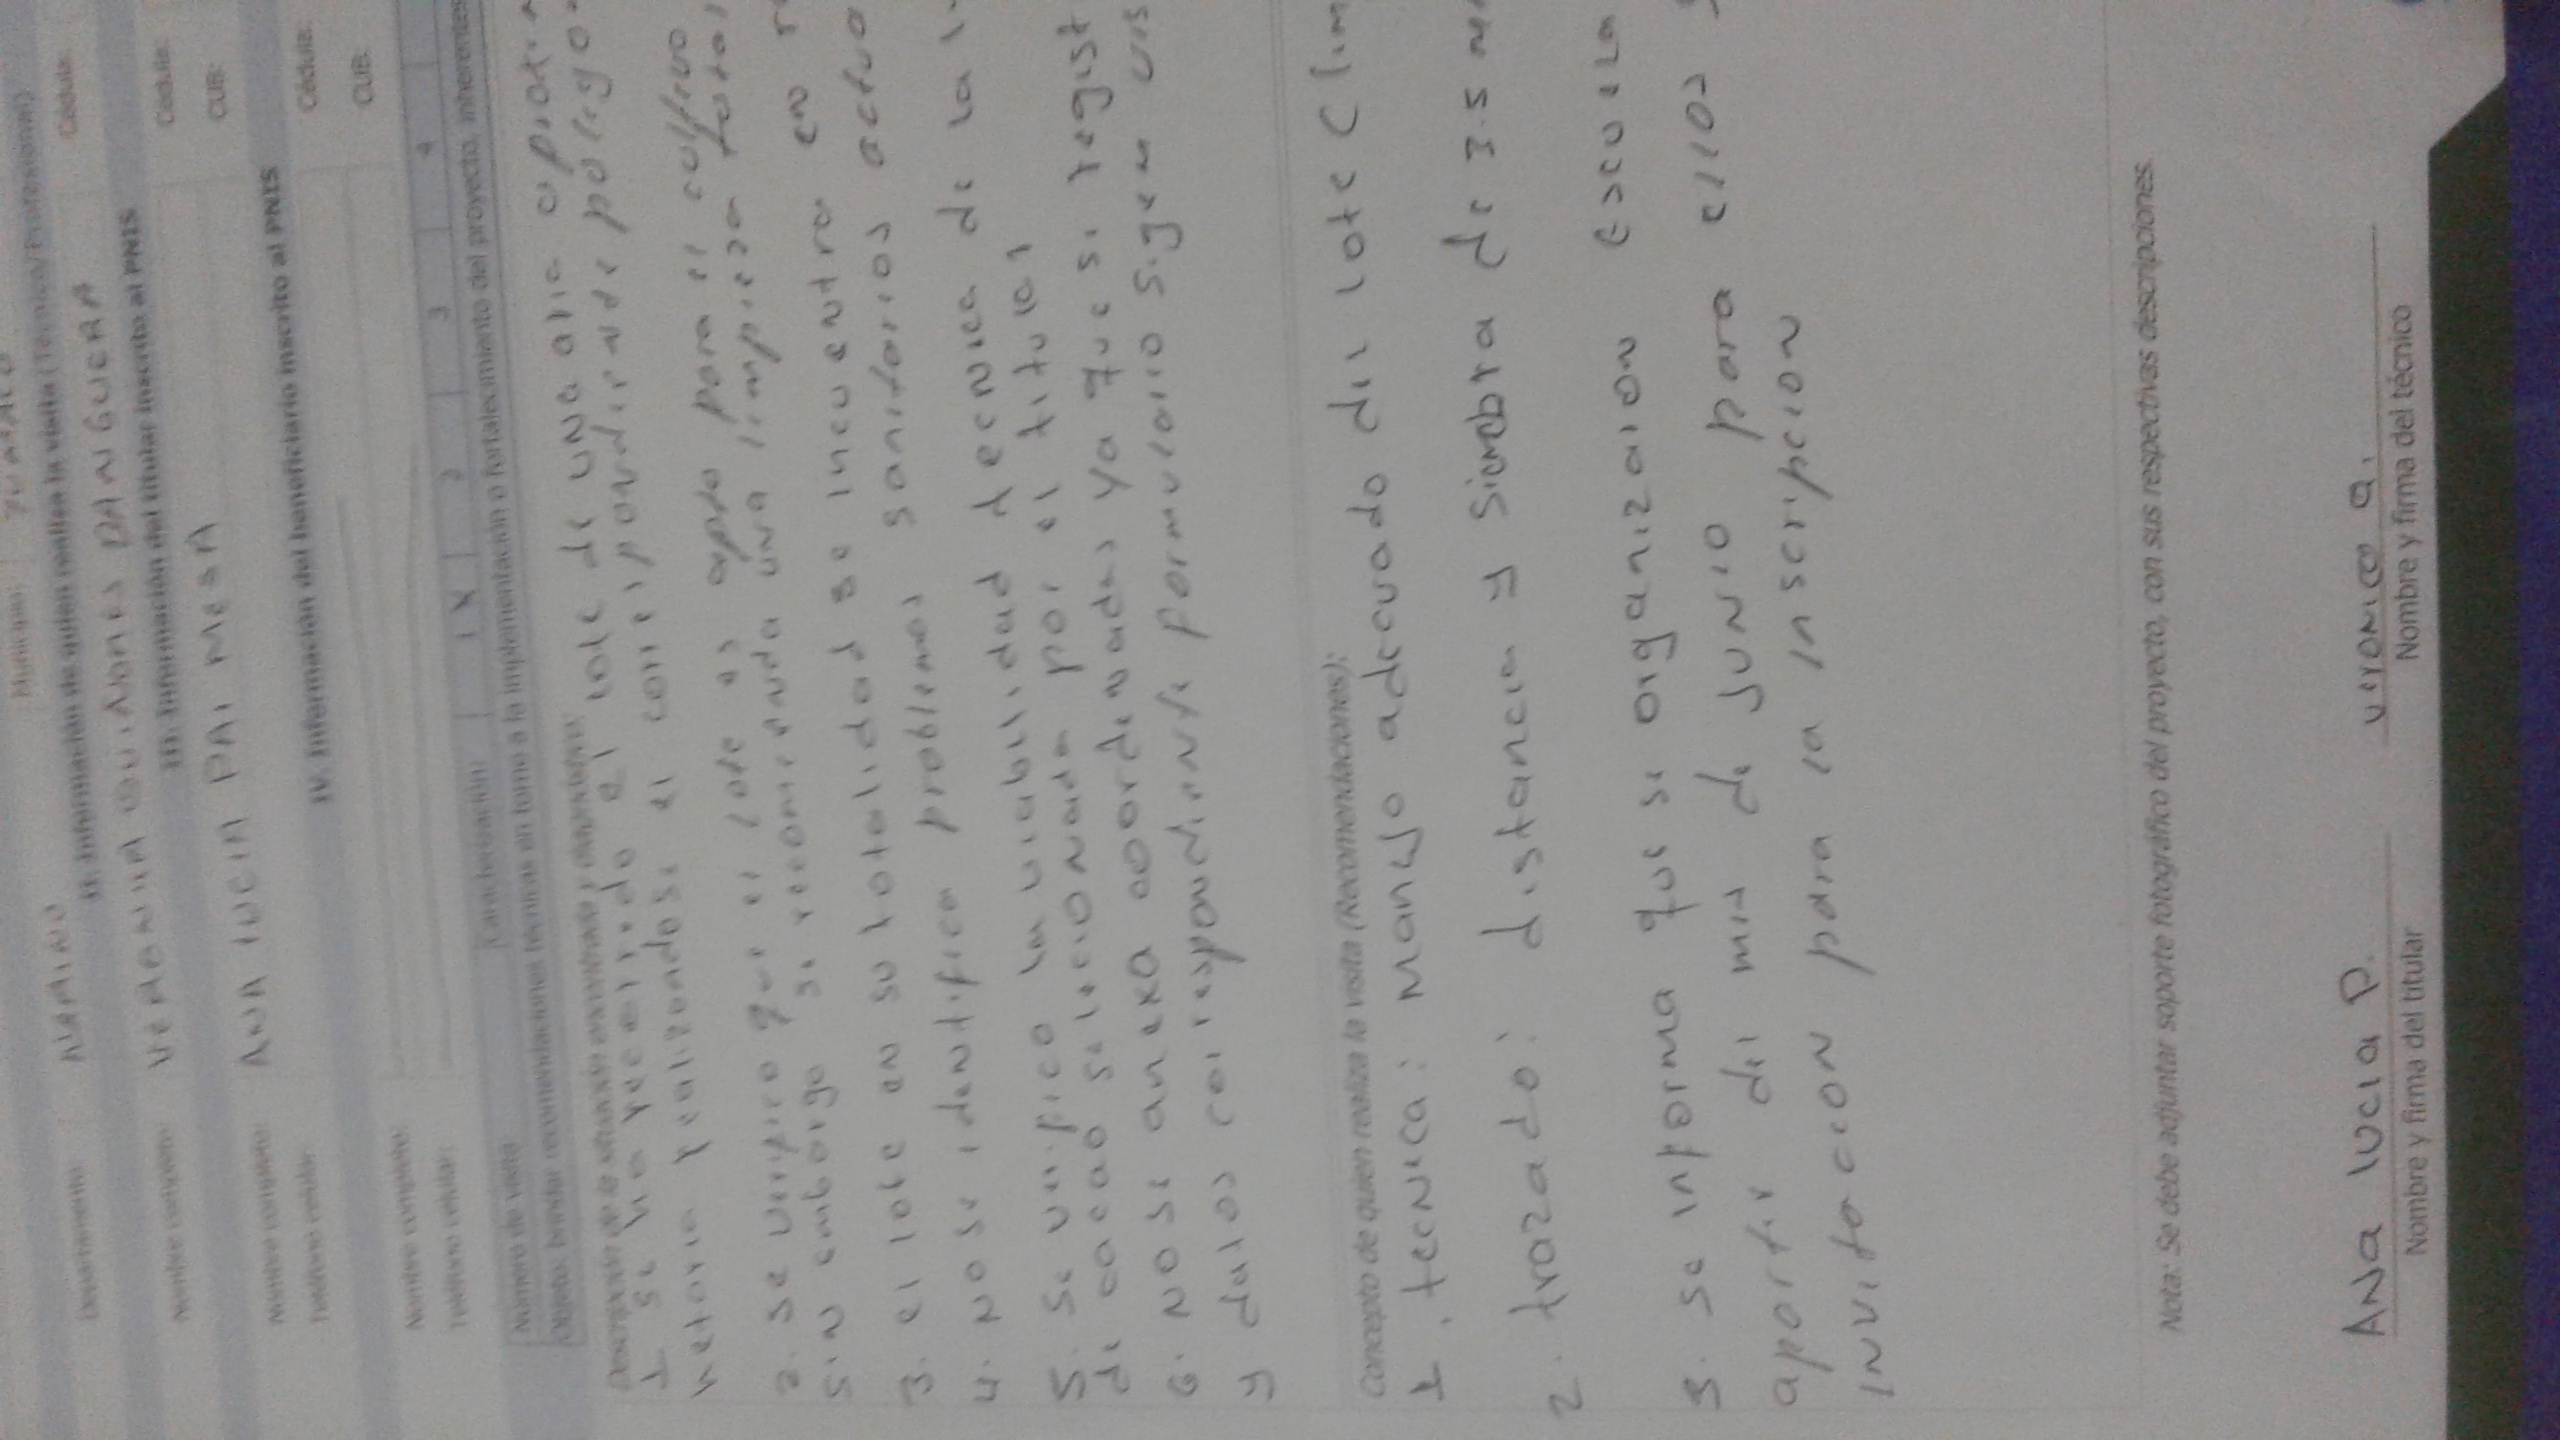 Municipio: TUMACO
Departamento: NARIÑO
II. Información de quien realiza la visita (Técnico/Profesional)
Nombre completo: VERONICA QUIÑONES DANGUERA Cédula:
III. Información del titular inscrito al PNIS
Nombre completo: ANA LUCIA PAI MESA Cédula:
Teléfono celular: CUB:
IV. Información del beneficiario inscrito al PNIS
Nombre completo: Cédula:
Teléfono celular: CUB:
Número de visita Caracterización 1 X 2 3 4
Objeto: brindar recomendaciones técnicas en torno a la implementación o fortalecimiento del proyecto, inherentes
1 Se ha recorrido el lote de una area
hectaria realizandose el correspondiente poligo
2. se verifico que el lote es apto para el cultivo
sin embargo se recomienda una limpieza total,
3. el lote en su totalidad se incuentra en
4. No se identifica problemas sanitarios
5. Se verifico la viabilidad tecnica de la
de cacao selecionada por el titular
6. No se anexa coordenadas ya que se regist
y datos correspondiente formulario sigen vis
Concepto de quien realiza la visita (Recomendaciones):
1. tecnica: Manejo adecuado del lote (lim
2. trazado: distancia y siembra de 3.5
3. se informa que se organizaron escuela
apartir del mes de Junio para ellos
invitacion para la inscripcion
Nota: Se debe adjuntar soporte fotográfico del proyecto, con sus respectivas descripciones.
ANA lucia P. veronica q.
Nombre y firma del titular Nombre y firma del técnico